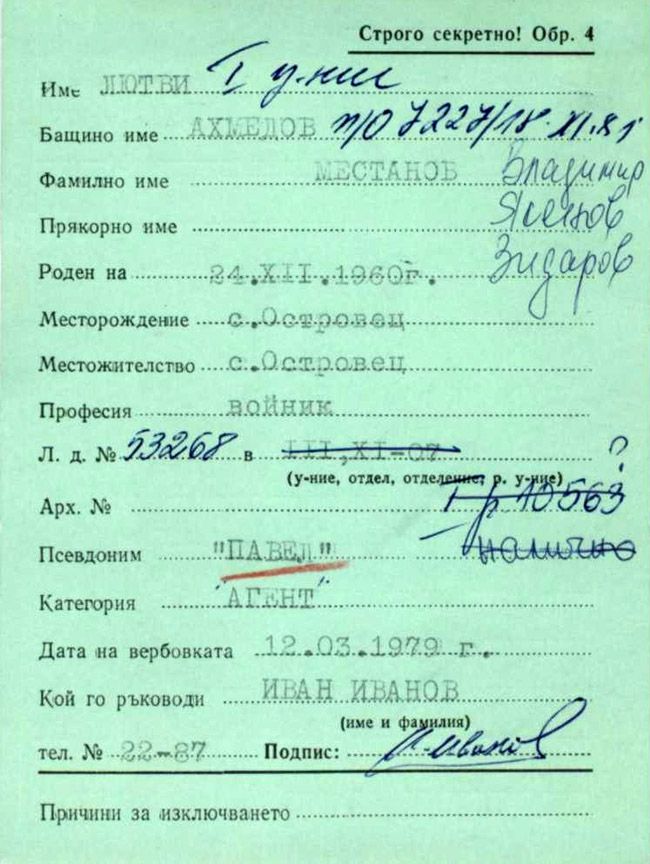 Строго секретно! Обр. 4
Име ЛЮТВИ I у-ние
Бащино име АХМЕДОВ п/о 7227/18.XI.81
Фамилно име МЕСТАНОВ Владимир
Прякорно име Ясенов
Роден на 24.XII.1960г. Зидаров
Месторождение с.Островец
Местожителство с.Островец
Професия войник
Л. д. № 53268 в III,XI-07 ?
(у-ние, отдел, отделение, р. у-ние)
Арх. № 10563
Псевдоним "ПАВЕЛ" налично
Категория "АГЕНТ"
Дата на вербовката 12.03.1979 г.
Кой го ръководи ИВАН ИВАНОВ
(име и фамилия)
тел. № 22-87 Подпис: Иванов
Причини за изключването